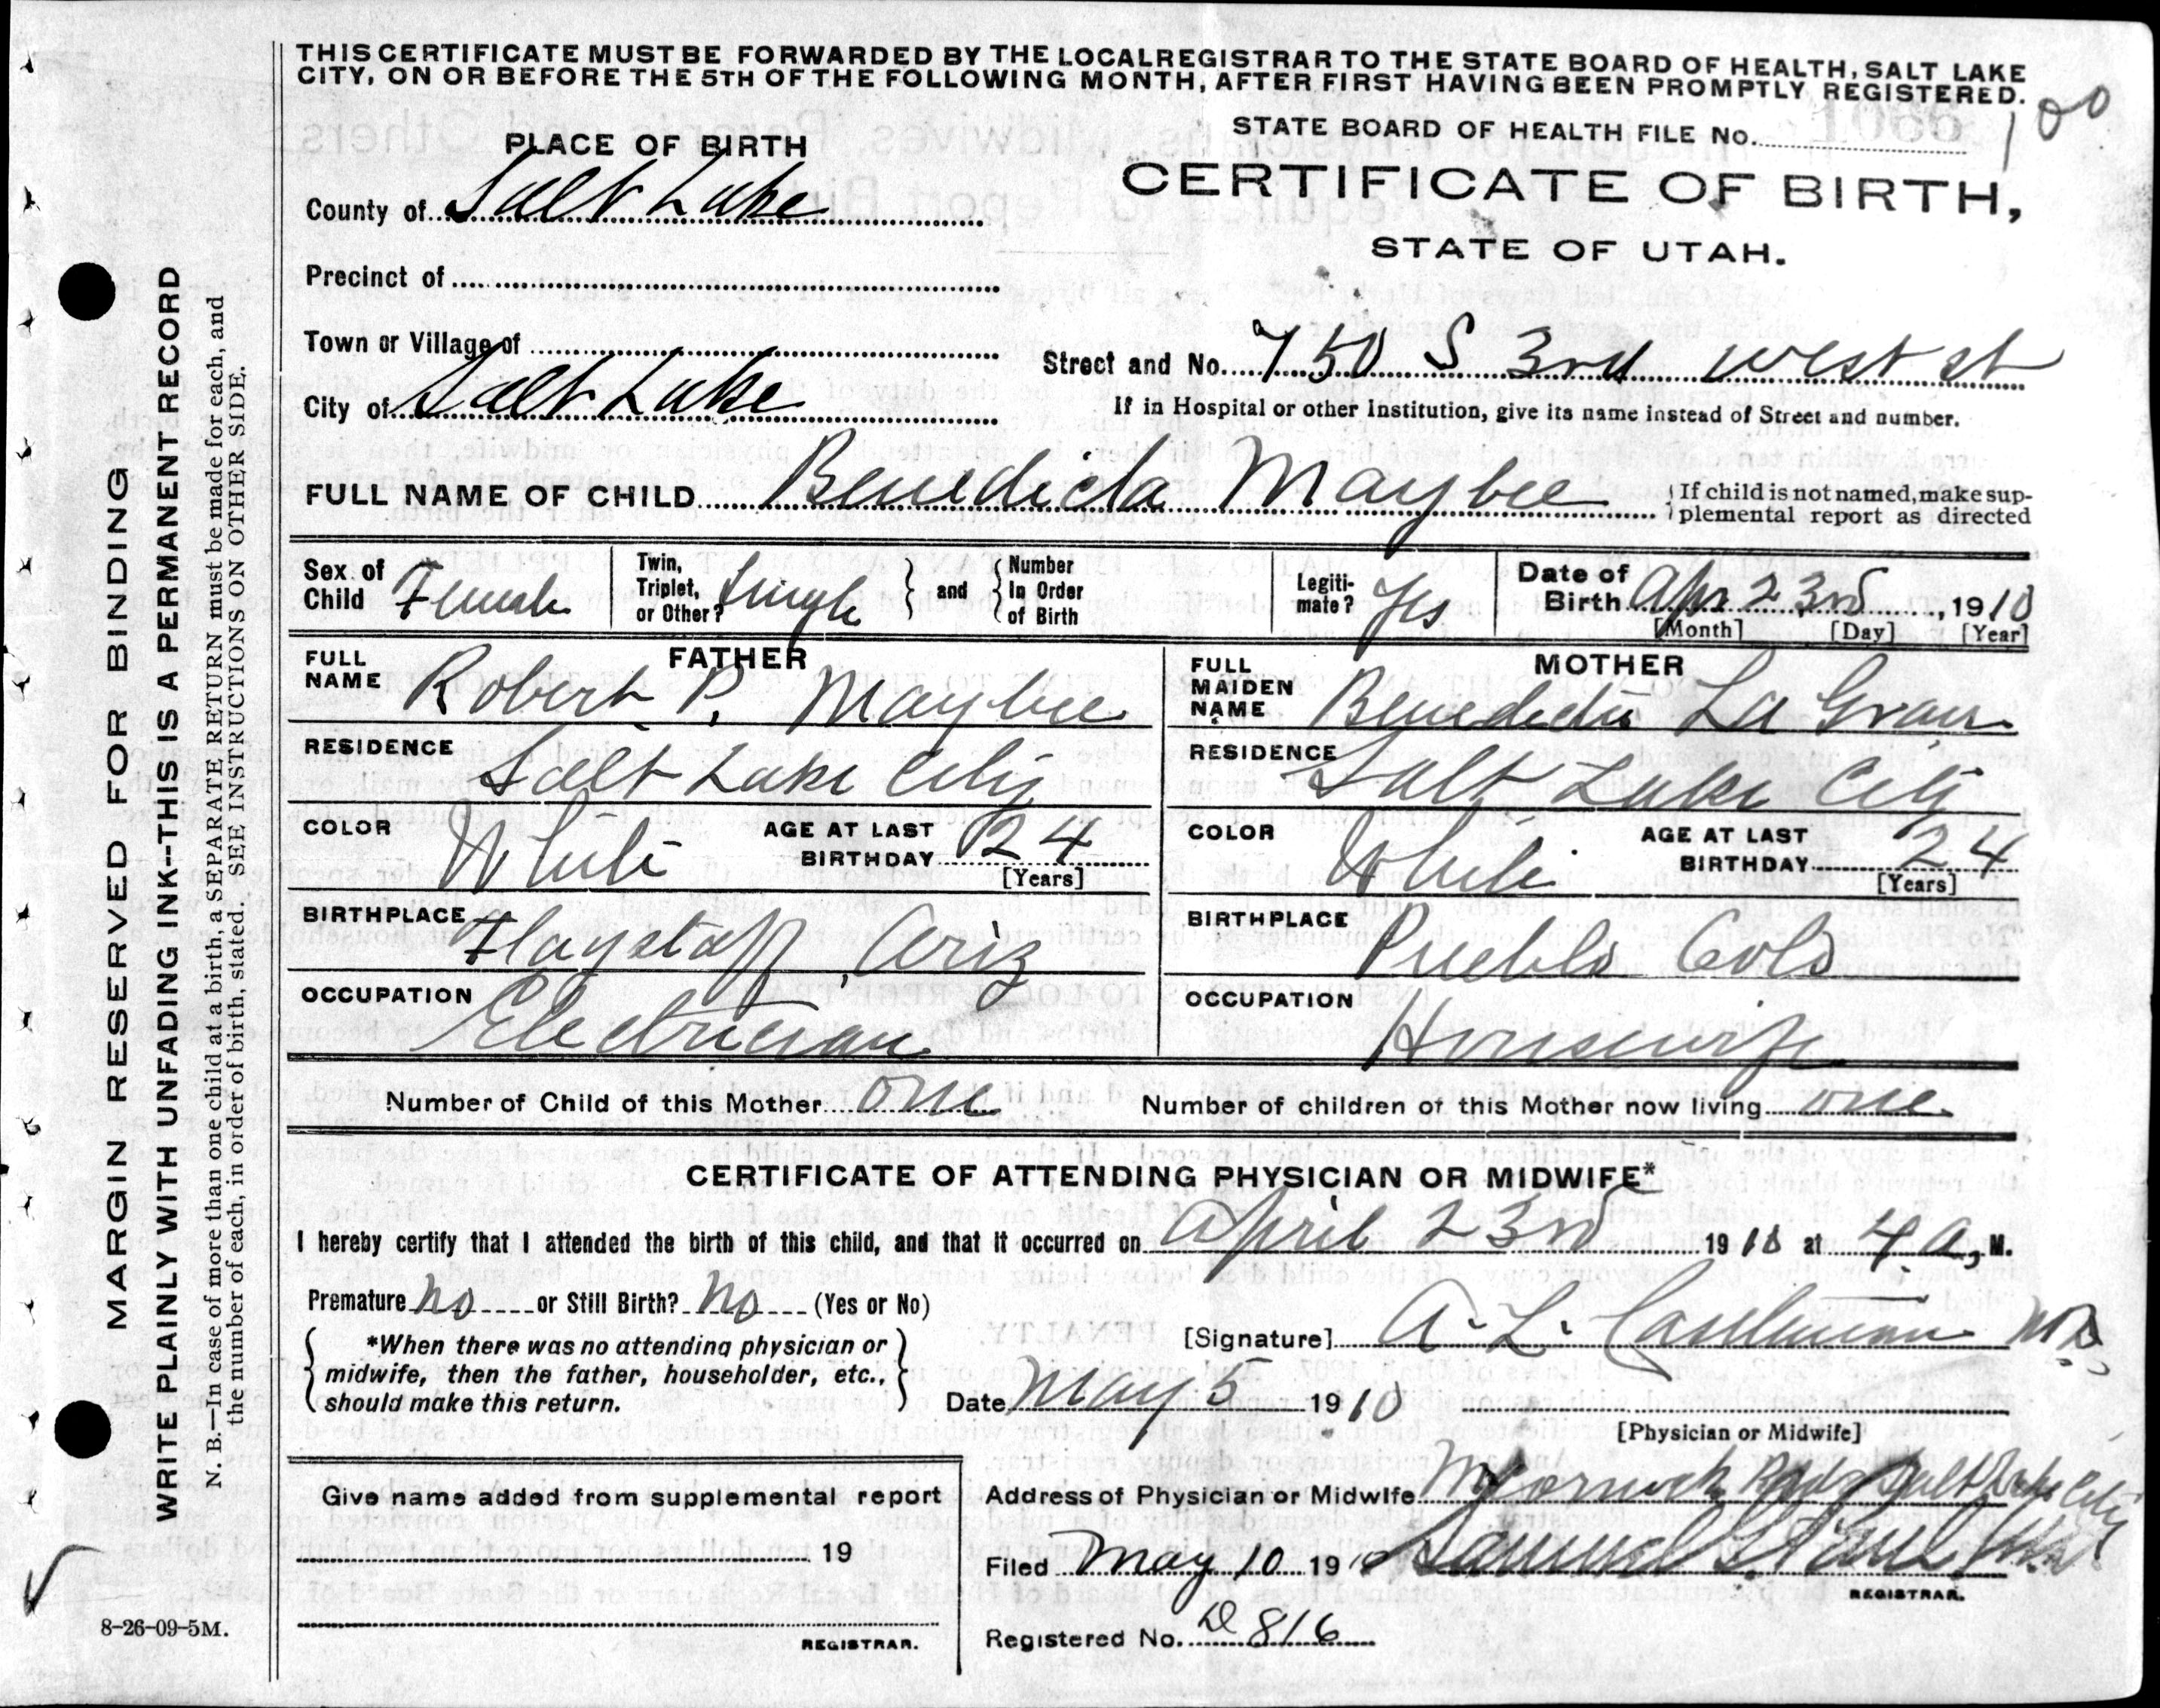 THIS CERTIFICATE MUST BE FORWARDED BY THE LOCAL REGISTRAR TO THE STATE BOARD OF HEALTH, SALT LAKE
CITY, ON OR BEFORE THE 5TH OF THE FOLLOWING MONTH, AFTER FIRST HAVING BEEN PROMPTLY REGISTERED.
100
STATE BOARD OF HEALTH FILE No.
CERTIFICATE OF BIRTH,
STATE OF UTAH.
PLACE OF BIRTH
County of Salt Lake
Precinct of
Town or Village of
City of Salt Lake
Street and No. 750 S 3rd West st
If in Hospital or other Institution, give its name instead of Street and number.
FULL NAME OF CHILD Benedicta Maybee
If child is not named, make sup-
plemental report as directed
Sex of Child Female
Twin, Triplet, or Other? Single
and
Number In Order of Birth
Legiti-mate? Yes
Date of Birth Apr 23rd, 1910
[Month] [Day] [Year]
FATHER
FULL NAME Robert P. Maybee
RESIDENCE Salt Lake City
COLOR White
AGE AT LAST BIRTHDAY 24
[Years]
BIRTHPLACE Flagstaff, Ariz
OCCUPATION Electrician
MOTHER
FULL MAIDEN NAME Benedicta La Gran
RESIDENCE Salt Lake City
COLOR White
AGE AT LAST BIRTHDAY 24
[Years]
BIRTHPLACE Pueblo Colo
OCCUPATION Housewife
Number of Child of this Mother one
Number of children of this Mother now living one
CERTIFICATE OF ATTENDING PHYSICIAN OR MIDWIFE*
I hereby certify that I attended the birth of this child, and that it occurred on April 23rd 1910 at 4 a, M.
Premature no or Still Birth? No (Yes or No)
*When there was no attending physician or
midwife, then the father, householder, etc.,
should make this return.
[Signature] A. L. Castleman MD
Date May 5 1910
[Physician or Midwife]
Address of Physician or Midwife McCornick Bldg Salt Lake City
Give name added from supplemental report
19
REGISTRAR.
Filed May 10 1910 Samuel G. Paul
REGISTRAR.
Registered No. D 816
MARGIN RESERVED FOR BINDING
WRITE PLAINLY WITH UNFADING INK--THIS IS A PERMANENT RECORD
N. B.—In case of more than one child at a birth, a SEPARATE RETURN must be made for each, and
the number of each, in order of birth, stated. SEE INSTRUCTIONS ON OTHER SIDE.
8-26-09-5M.